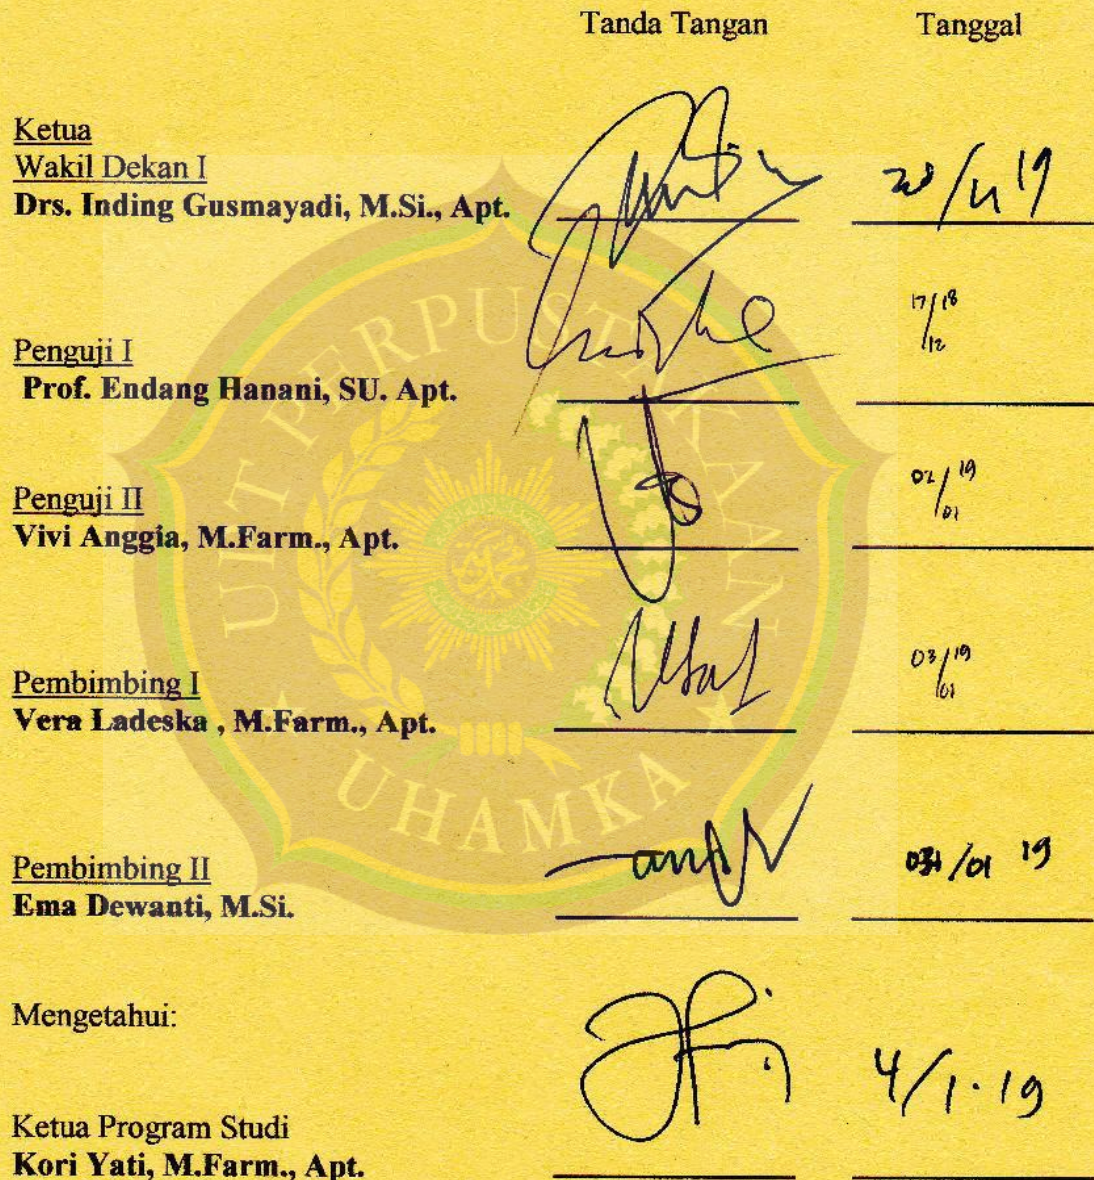 Tanda Tangan Tanggal
Ketua
Wakil Dekan I
Drs. Inding Gusmayadi, M.Si., Apt.
/19
Penguji I
Prof. Endang Hanani, SU. Apt.
17/18
/12
Penguji II
Vivi Anggia, M.Farm., Apt.
02/19
/01
Pembimbing I
Vera Ladeska , M.Farm., Apt.
03/19
/01
Pembimbing II
Ema Dewanti, M.Si.
/01 19
Mengetahui:
4/1.19
Ketua Program Studi
Kori Yati, M.Farm., Apt.
UPT PERPUSTAKAAN
UHAMKA